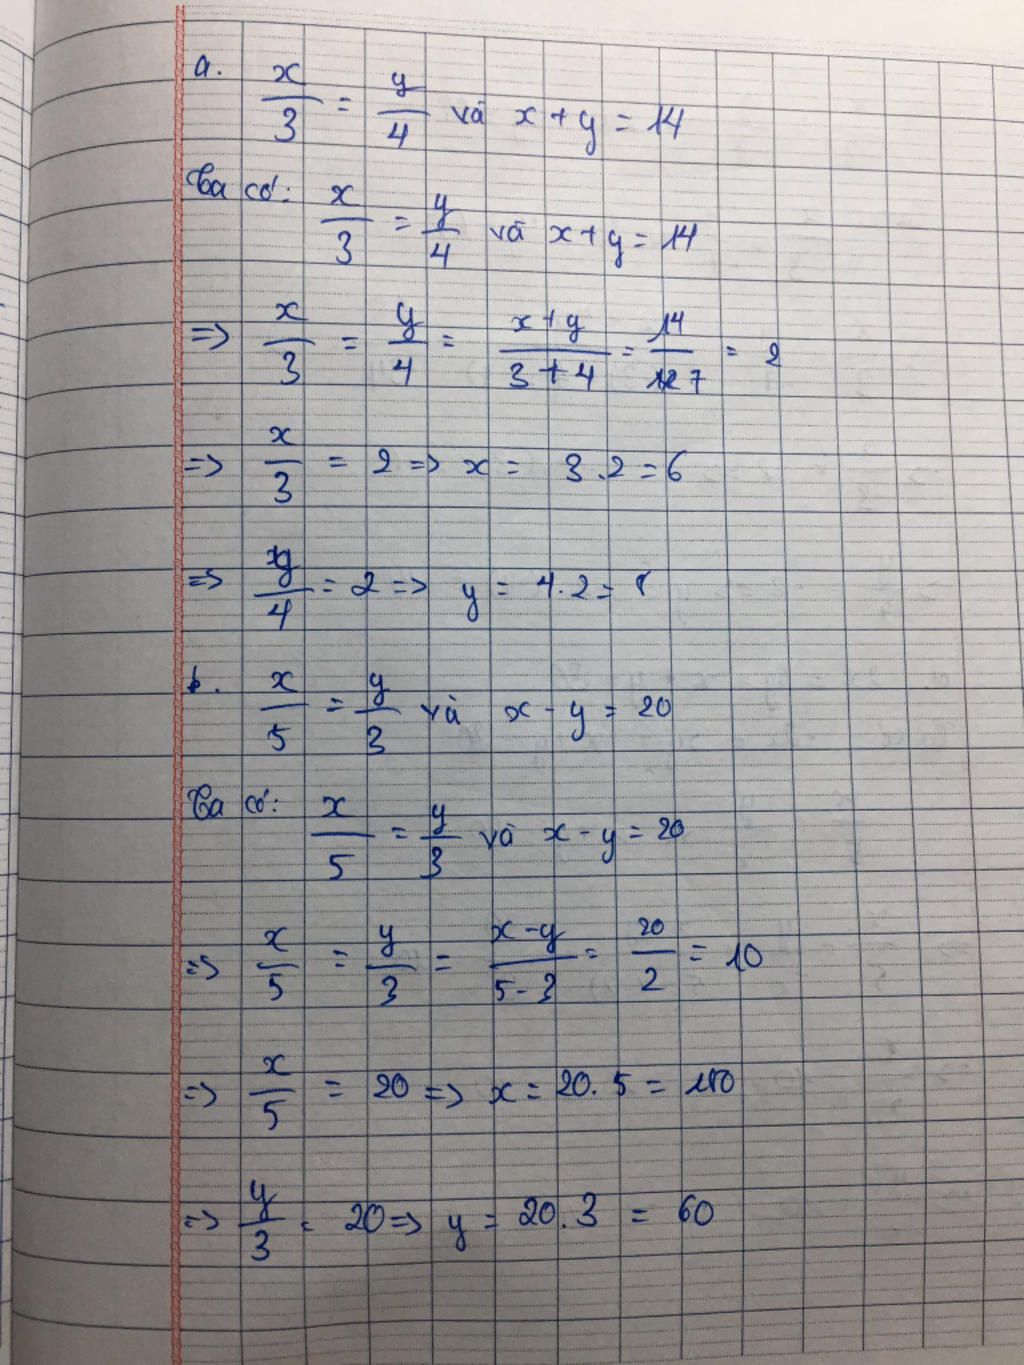 a. x/3 = y/4 và x + y = 14
Ta có: x/3 = y/4 và x + y = 14
=> x/3 = y/4 = (x + y)/(3 + 4) = 14/7 = 2
=> x/3 = 2 => x = 3.2 = 6
=> y/4 = 2 => y = 4.2 = 8
b. x/5 = y/3 và x - y = 20
Ta có: x/5 = y/3 và x - y = 20
=> x/5 = y/3 = (x - y)/(5 - 3) = 20/2 = 10
=> x/5 = 20 => x = 20.5 = 100
=> y/3 = 20 => y = 20.3 = 60